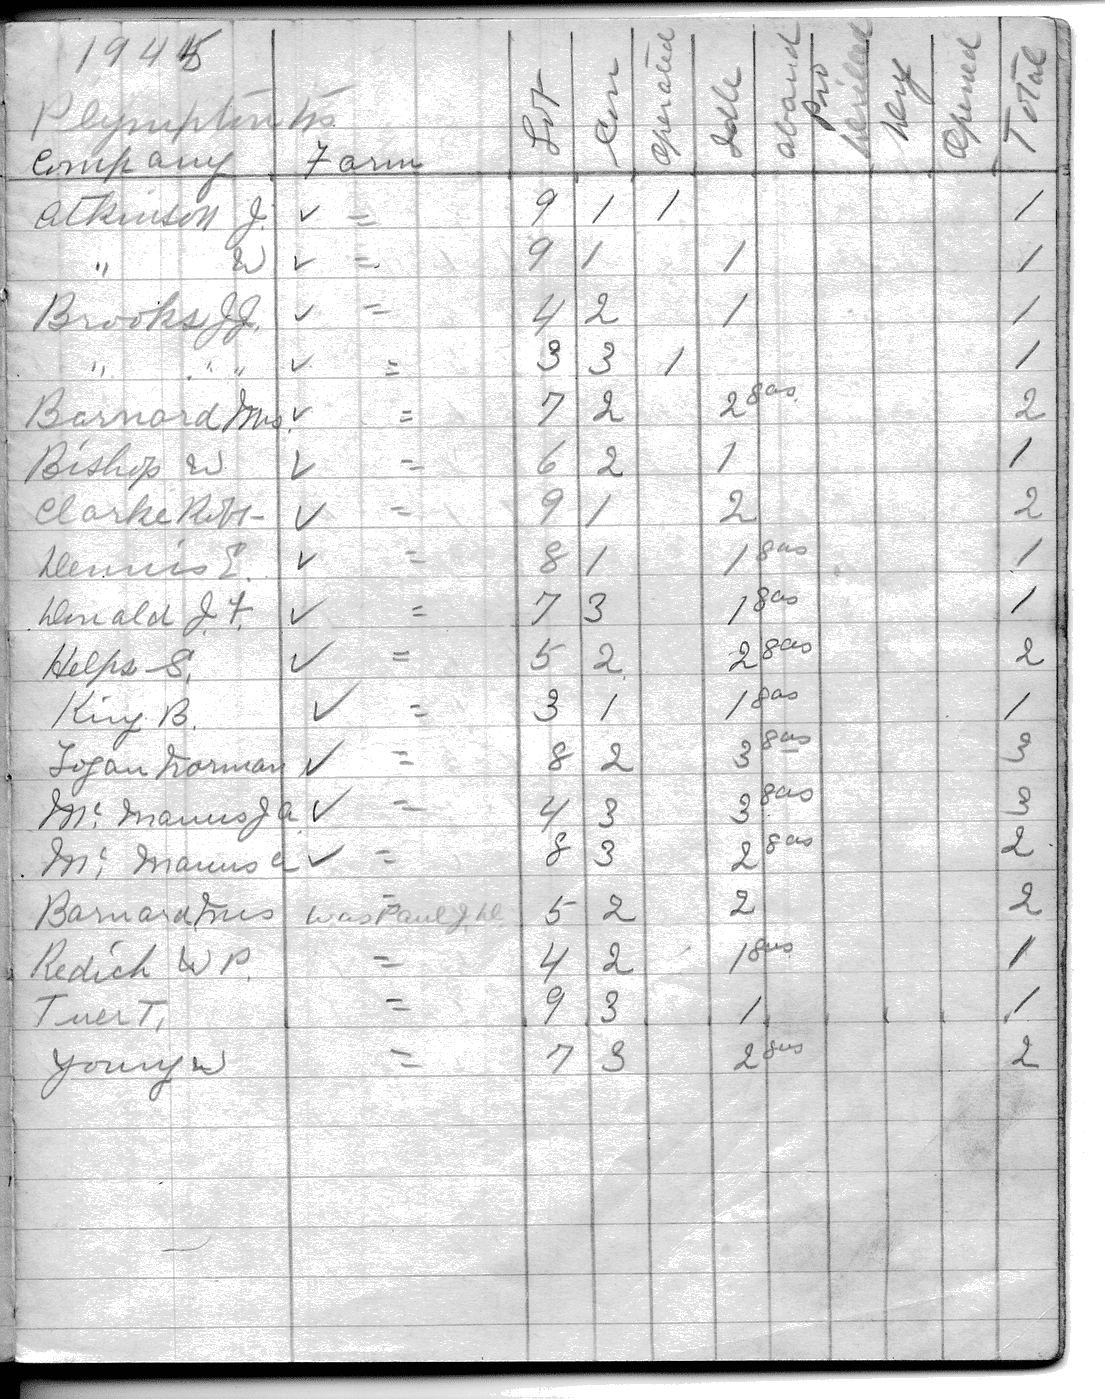 1945
Plympton
Company Farm Lot Con Operated Idle Aband Pro Drilled Dry Opened Total
Atkinson J. ✓ = 9 1 1 1
" W ✓ = 9 1 1 1
Brooks J.J. ✓ = 4 2 1 1
" " " ✓ = 3 3 1 1
Barnard Mrs. ✓ = 7 2 2 gas 2
Bishop W ✓ = 6 2 1 1
Clarke Robt ✓ = 9 1 2 2
Dennis E. ✓ = 8 1 1 gas 1
Donald J. F. ✓ = 7 3 1 gas 1
Helps S. ✓ = 5 2 2 gas 2
King B. ✓ = 3 1 1 gas 1
Logan Norman ✓ = 8 2 3 gas 3
Mc Manus J a. ✓ = 4 3 3 gas 3
Mc Manus a ✓ = 8 3 2 gas 2
Barnard Mrs was Paul J. = 5 2 2 2
Redick W P. = 4 2 1 gas 1
T. = 9 3 1 1
Young W = 7 3 2 gas 2